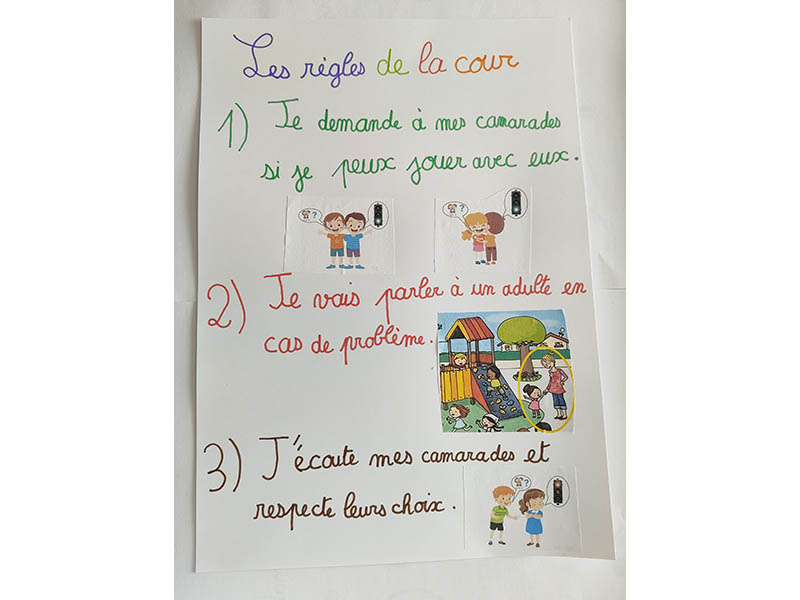 Les règles de la cour
1) Je demande à mes camarades
si je peux jouer avec eux.
? 
?
2) Je vais parler à un adulte en
cas de problème.
3) J'écoute mes camarades et
respecte leurs choix.
?